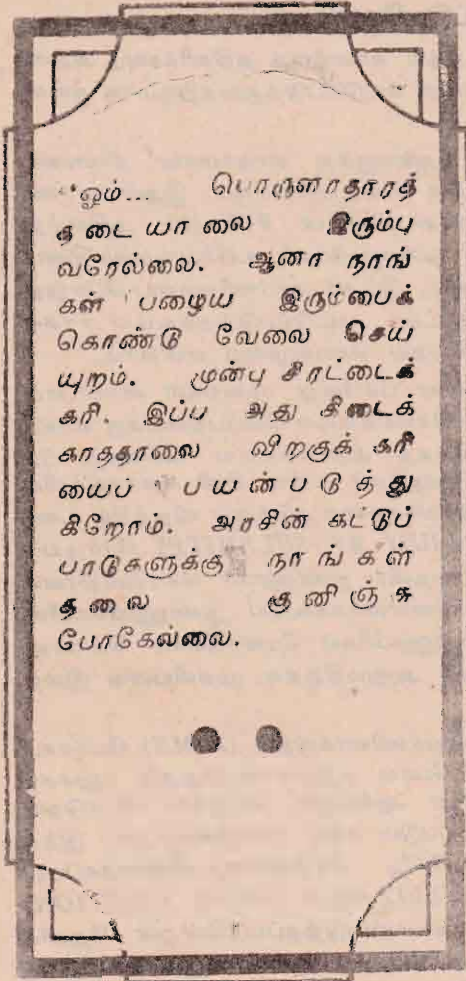 “ஓம்... பொருளாதாரத்
தடை யா லை இரும்பு
வரேல்லை. ஆனா நாங்
கள் பழைய இரும்பைக்
கொண்டு வேலை செய்
யுறம். முன்பு சிரட்டைக்
கரி. இப்ப அது கிடைக்
காததாலை விறகுக் கரி
யைப் பயன் படுத்து
கிறோம். அரசின் கட்டுப்
பாடுகளுக்கு நாங்கள்
தலை குனிஞ்சு
போகேல்லை.